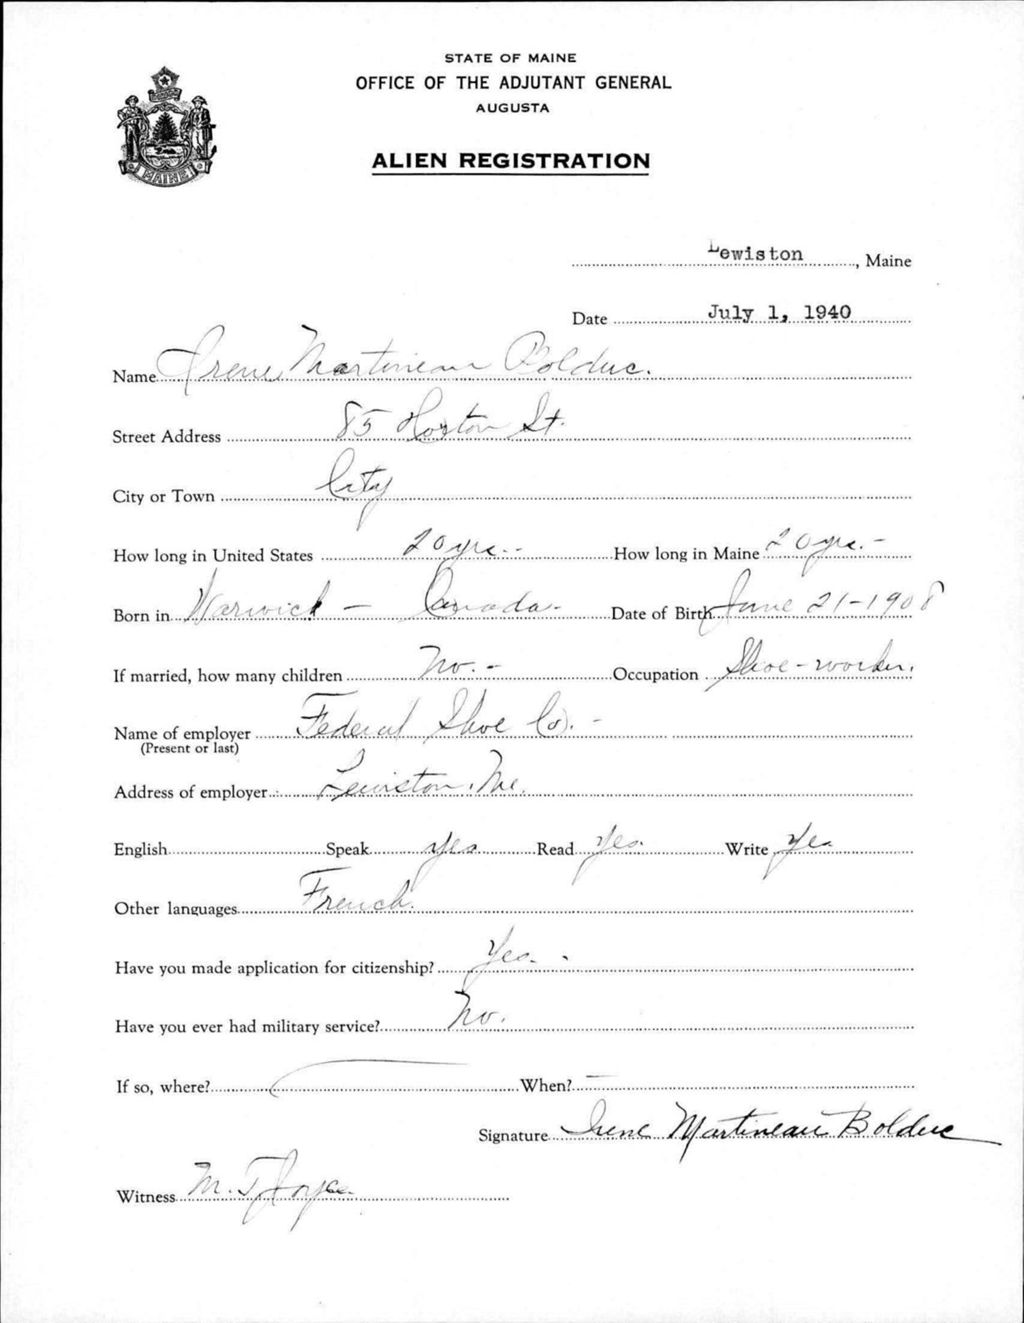 STATE OF MAINE
OFFICE OF THE ADJUTANT GENERAL
AUGUSTA
MAINE
ALIEN REGISTRATION
Lewiston, Maine
Date July 1, 1940
Name Irene Martineau Bolduc.
Street Address 85 Horton St.
City or Town City
How long in United States 20 yrs. - How long in Maine 20 yrs. -
Born in Warwick - Canada - Date of Birth June 21-1908
If married, how many children No. - Occupation Shoe-worker.
Name of employer Federal Shoe Co. -
(Present or last)
Address of employer Lewiston, Me.
English Speak yes Read Yes. Write Yes
Other languages French.
Have you made application for citizenship? Yes. -
Have you ever had military service? No.
If so, where? When? -
Signature Irene Martineau Bolduc
Witness M. J. Joyce